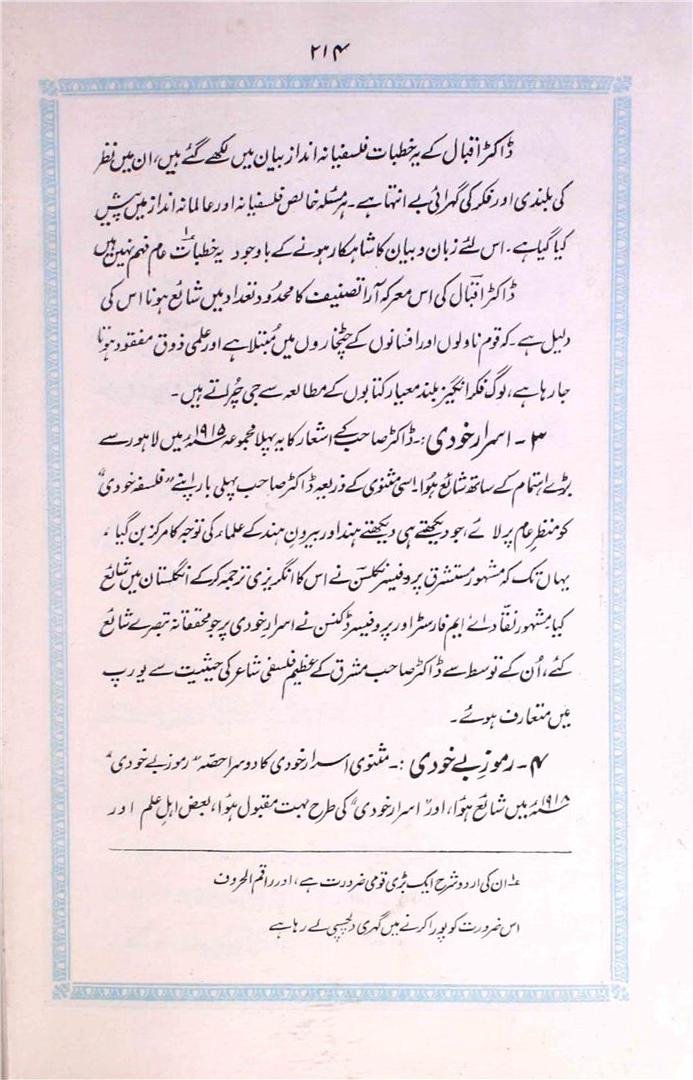 ۲۱۴
ڈاکٹر اقبال کے یہ خطبات فلسفیانہ انداز بیان میں لکھے گئے ہیں، ان میں نظر
کی بلندی اور فکر کی گہرائی بے انتہا ہے۔ ہر مسئلہ خالص فلسفیانہ اور عالمانہ انداز میں پیش
کیا گیا ہے۔ اس لئے زبان و بیان کا شاہکار ہونے کے باوجود یہ خطبات۱؎ عام فہم نہیں ہیں
ڈاکٹر اقبالؔ کی اس معرکہ آرا تصنیف کا محدود تعداد میں شائع ہونا اس کی
دلیل ہے۔ کہ قوم ناولوں اور افسانوں کے چٹخاروں میں مُبتلا ہے اور علمی ذوق مفقود ہوتا
جا رہا ہے، لوگ فکر انگیز بلند معیار کتابوں کے مطالعہ سے جی چُراتے ہیں۔
۳۔ اسرارِ خودی :۔ ڈاکٹر صاحب کے اشعار کا یہ پہلا مجموعہ ۱۹۱۵ء میں لاہور سے
بڑے اہتمام کے ساتھ شائع ہُوا۔ اسی مثنوی کے ذریعہ ڈاکٹر صاحب پہلی بار اپنے "فلسفہ خودی"
کو منظرِ عام پر لائے، جو دیکھتے ہی دیکھتے ہند اور بیرونِ ہند کے علماء کی توجہ کا مرکز بن گیا،
یہاں تک کہ مشہور مستشرق پروفیسر نکلسن نے اس کا انگریزی ترجمہ کر کے انگلستان میں شائع
کیا، مشہور نقّاد اے ایم فارسٹر اور پروفیسر ڈکنسن نے اسرارِ خودی پر جو محققانہ تبصرے شائع
کئے، اُن کے توسط سے ڈاکٹر صاحب مشرق کے عظیم فلسفی شاعر کی حیثیت سے یورپ
میں متعارف ہوئے۔
۴۔ رموزِ بے خودی :۔ مثنوی اسرارِ خودی کا دوسرا حصّہ "رموز بے خودی"
۱۹۱۸ء میں شائع ہُوا، اور "اسرار خودی" کی طرح بہت مقبول ہُوا، بعض اہلِ علم اور
۱؎ ان کی اردو شرح ایک بڑی قومی ضرورت ہے، اور راقم الحروف
اس ضرورت کو پورا کرنے میں گہری دلچسپی لے رہا ہے